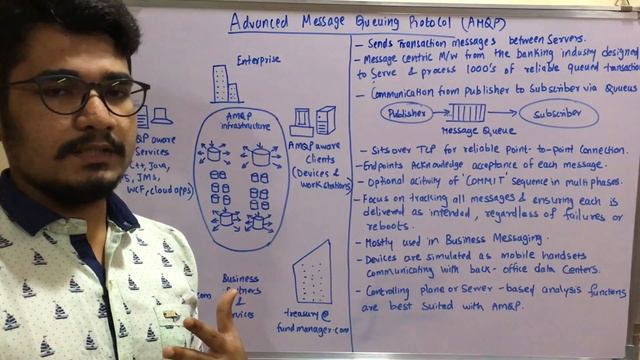 Advanced Message Queuing Protocol (AMQP)
Enterprise
AMQP
infrastructure
QP aware
Services
C++, Java,
S, JMS,
WCF, cloud apps)
AMQP aware
Clients
(Devices &
workstations)
Business
Partners
&
Services
.com
treasury@
fundmanager.com
- Sends Transaction messages between Servers.
- Message centric M/w from the banking industry designed
to Serve & process 1000's of reliable queued transactions
- Communication from publisher to subscriber via Queues
Publisher
Subscriber
Message Queue
- Sits over TCP for reliable point-to-point connection.
- Endpoints Acknowledge acceptance of each message.
- Optional acitivity of 'COMMIT' sequence in multi phases.
- Focus on tracking all messages & ensuring each is
delivered as intended, regardless of failures or
reboots.
- Mostly used in Business Messaging.
- Devices are simulated as mobile handsets
communicating with back-office data Centers.
- Controlling plane or Server-based analysis functions
are best suited with AMQP.